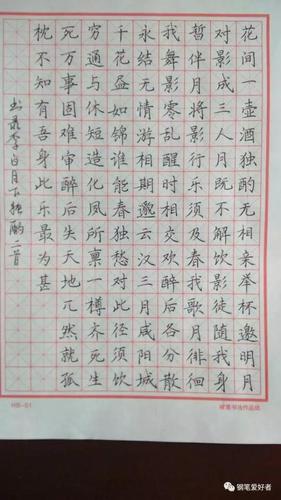 花间一壶酒独酌无相亲举杯邀明月
对影成三人月既不解饮影徒随我身
暂伴月将影行乐须及春我歌月徘徊
我舞影零乱醒时相交欢醉后各分散
永结无情游相期邈云汉三月咸阳城
千花昼如锦谁能春独愁对此径须饮
穷通与修短造化夙所禀一樽齐死生
死万事固难审醉后失天地兀然就孤
枕不知有吾身此乐最为甚
书录李白月下独酌二首
HB-51
钢笔爱好者